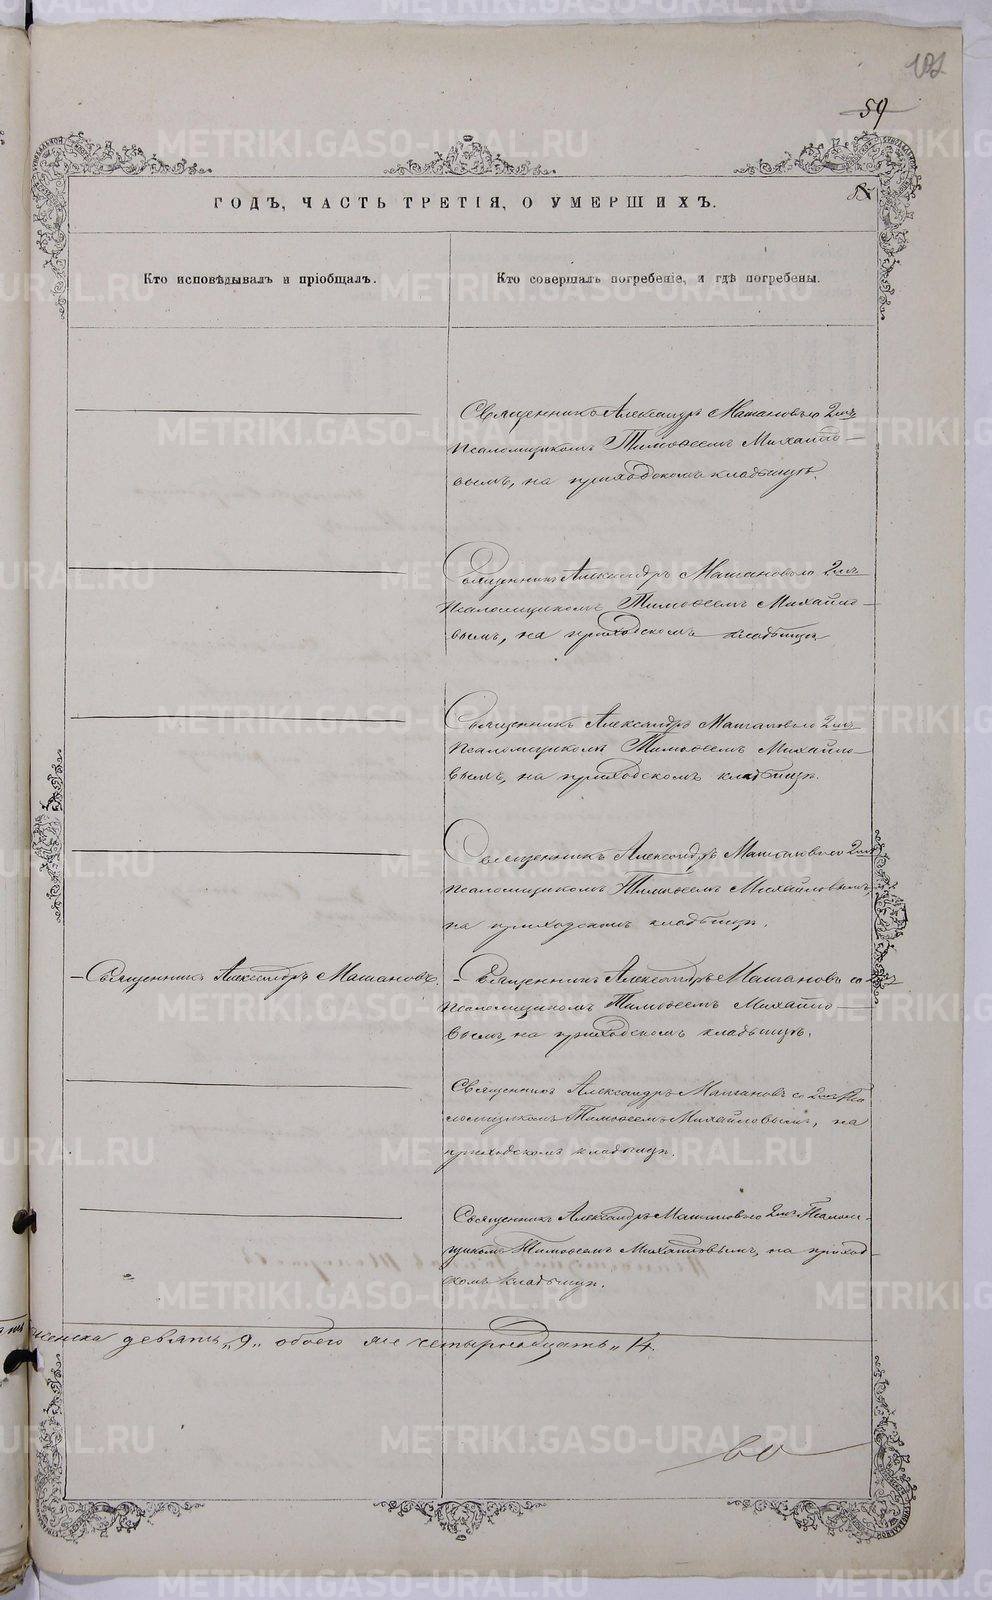 59
ГОДЪ, ЧАСТЬ ТРЕТІЯ, О УМЕРШИХЪ.
Кто исповѣдывалъ и пріобщалъ.
Кто совершалъ погребеніе, и гдѣ погребены.
Священникъ Александръ Машановъ со 2мъ
псаломщикомъ Тимофеемъ Михайло-
вымъ, на приходскомъ кладбищѣ.
Священникъ Александръ Машановъ со 2мъ
Псаломщикомъ Тимофеемъ Михайло-
вымъ, на приходскомъ кладбищѣ
Священникъ Александръ Машановъ со 2мъ
Псаломщикомъ Тимофеемъ Михайло-
вымъ, на приходскомъ кладбищѣ.
Священникъ Александръ Машановъ со 2мъ
псаломщикомъ Тимофеемъ Михайловымъ,
на приходскомъ кладбищѣ.
Священникъ Александръ Машановъ.
Священникъ Александръ Машановъ со
Псаломщикомъ Тимофеемъ Михайло-
вымъ, на приходскомъ кладбищѣ.
Священникъ Александръ Машановъ со 2мъ Пса
ломщикомъ Тимофеемъ Михайловымъ, на
приходскомъ кладбищѣ.
Священникъ Александръ Машановъ со 2мъ Псалом-
щикомъ Тимофеемъ Михайловымъ, на приход-
скомъ кладбищѣ.
женска девять „9„ обоего же четырнадцать „14.
METRIKI.GASO-URAL.RU